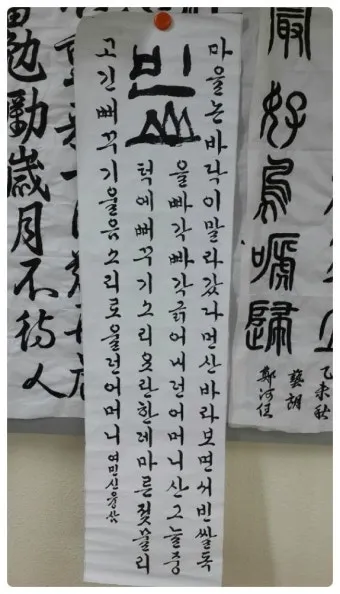 乙未秋
藝胡
鄭河任
好鳥啼歸
빈山
마을논바닥이말라갔다먼산바라보면서빈쌀독
을빠각빠각긁어대던어머니산그늘중
턱에뻐꾸기소리요란한데마른젖물리
고긴뻐꾸기울음소리로울던어머니 여민신웅삼
勉勵歲月不待人